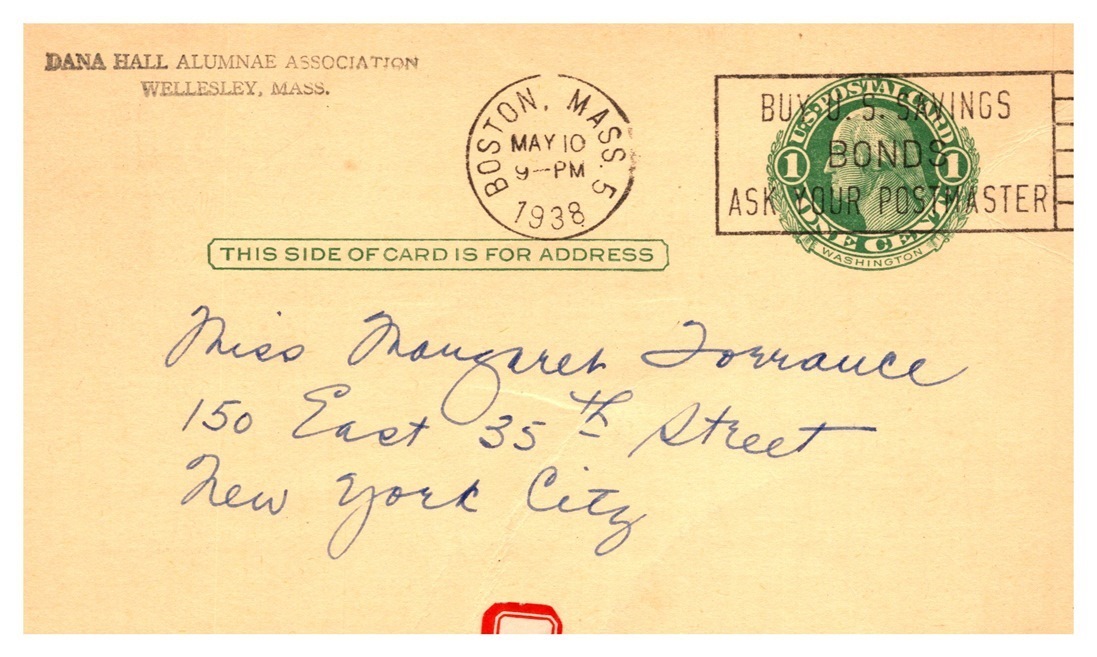 DANA HALL ALUMNAE ASSOCIATION
WELLESLEY, MASS.
BOSTON, MASS. 5
MAY 10
9-PM
1938
BUY U. S. SAVINGS
BONDS
ASK YOUR POSTMASTER
U.S. POSTAL CARD
1 1
ONE CENT
WASHINGTON
THIS SIDE OF CARD IS FOR ADDRESS
Miss Margaret Torrance
150 East 35th Street
New York City